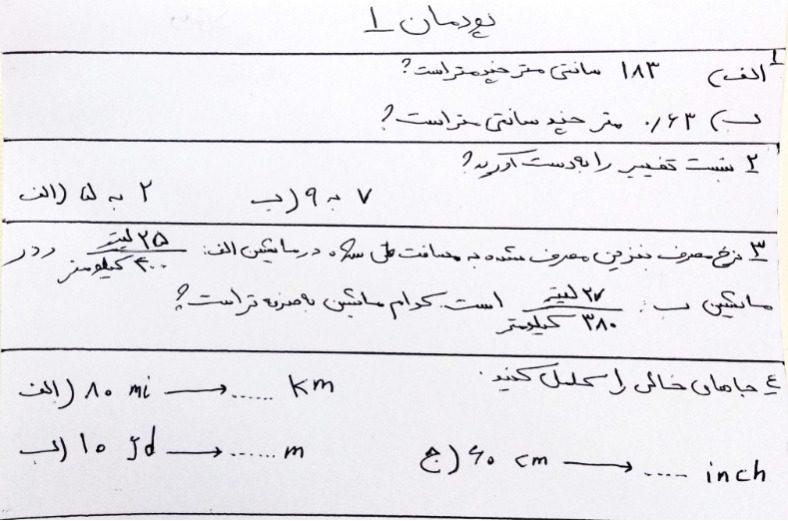 پودمان 1
1 الف) ۱۸۳ سانتی متر چند متر است؟
ب) ۰/۶۳ متر چند سانتی متر است؟
۲ نسبت تغییر را به دست آورید؟
الف) ۲ به ۵ ب) ۷ به ۹
۳ نرخ مصرف بنزین مصرف شده به مسافت طی شده در ماشین الف: ۲۵ لیتر / ۳۰۰ کیلومتر و در
ماشین ب: ۲۷ لیتر / ۳۸۰ کیلومتر است. کدام ماشین به صرفه تر است؟
٤ جاهای خالی را تکمیل کنید.
الف) ۸۰ mi → ...... km
ب) ۱۰ yd → ...... m ج) ۶۰ cm → .... inch